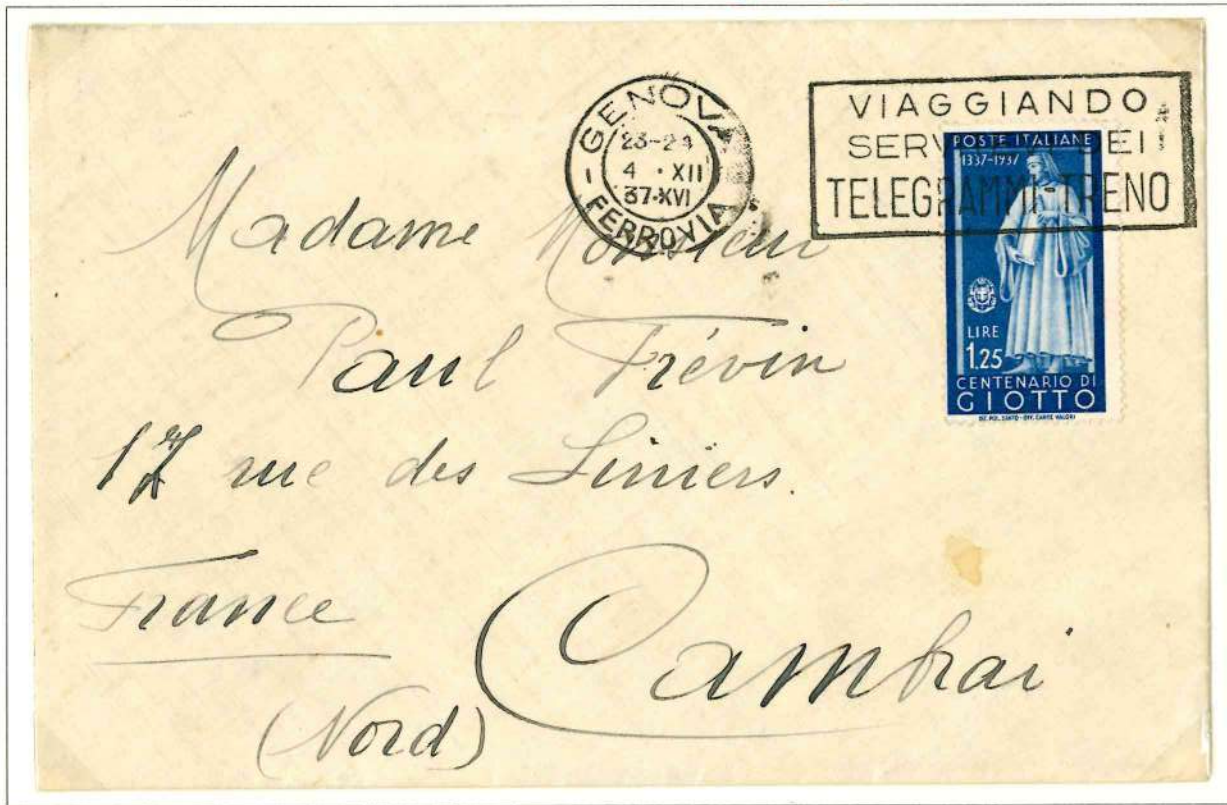 GENOVA
23-24
4 · XII
37·XVI
- FERROVIA
VIAGGIANDO
DEI
TELEGRAMMI-TRENO
POSTE ITALIANE
1337-1937
LIRE
1.25
CENTENARIO DI
GIOTTO
IST. POL. STATO - OFF. CARTE VALORI
Madame Monsieur
Paul Trévin
17 rue des Liniers.
France
Cambrai
(Nord)